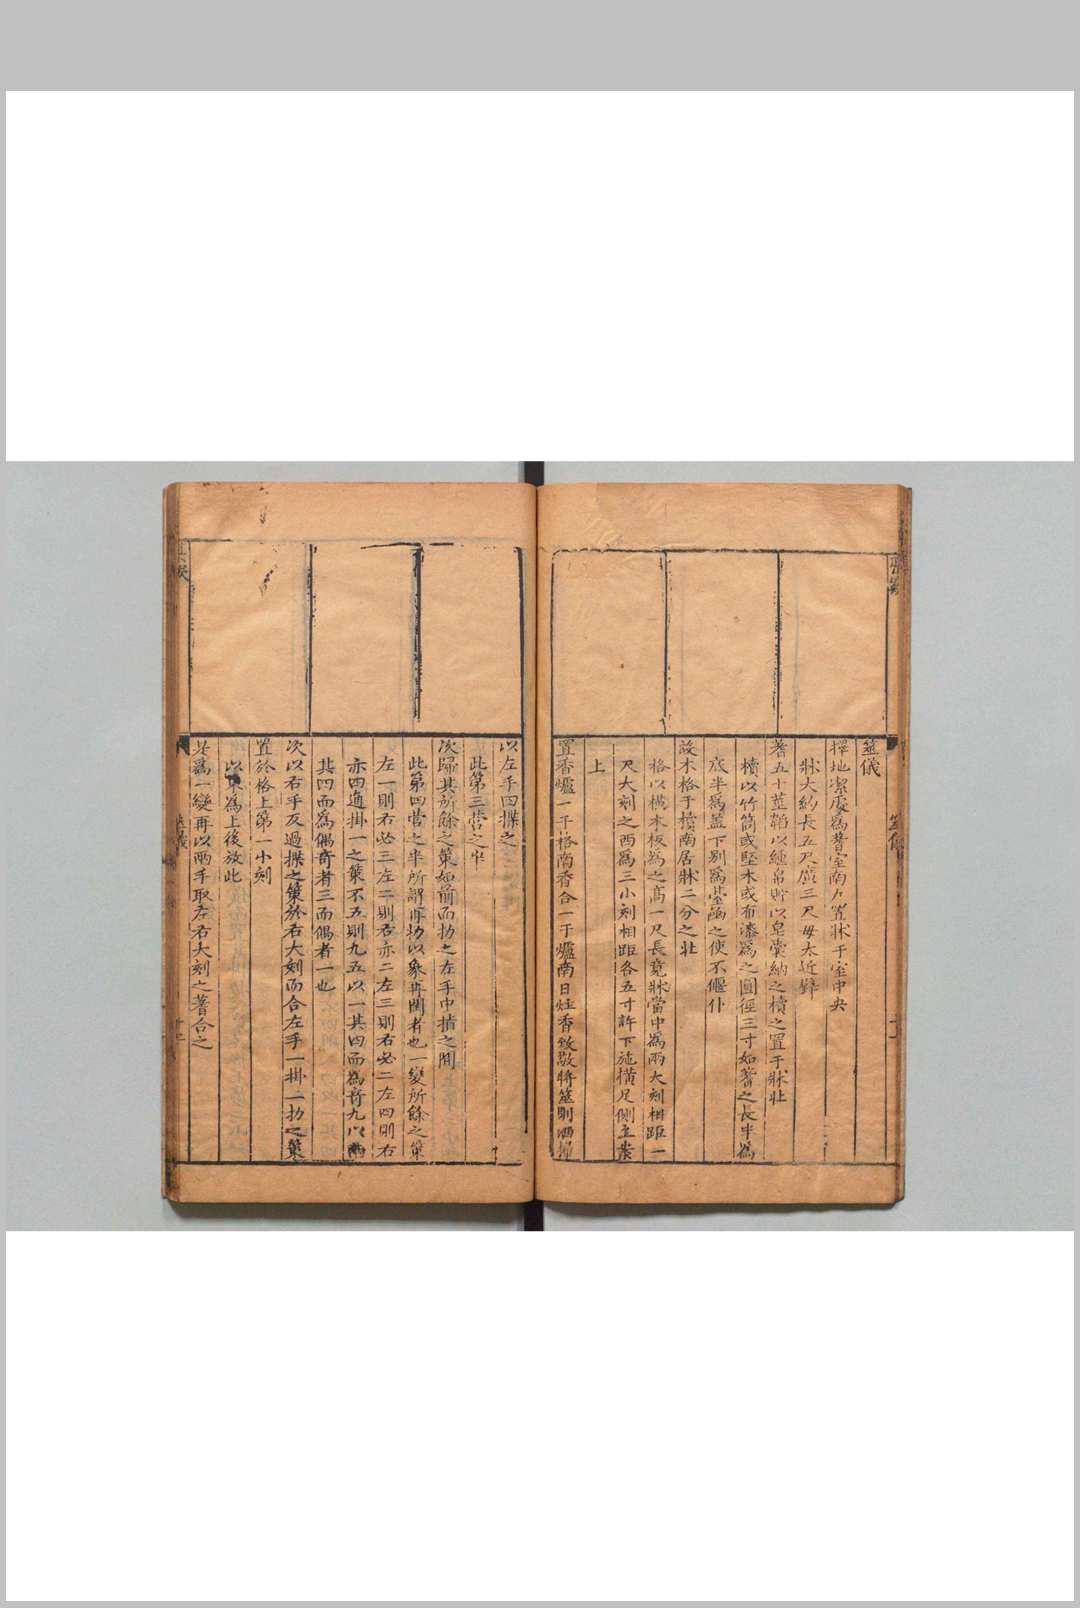 筮儀
擇地潔處爲蓍室南戶置牀于室中央
牀大約長五尺廣三尺毋太近壁
蓍五十莖韜以纁帛貯以皂囊納之櫝之置于牀北
櫝以竹筒或堅木或布漆爲之圓徑三寸如蓍之長半爲
底半爲蓋下別爲臺函之使不偃仆
設木格于櫝南居牀二分之北
格以橫木板爲之高一尺長竟牀當中爲兩大刻相距一
尺大刻之西爲三小刻相距各五寸許下施橫足側立案
上
置香爐一于格南香合一于爐南日炷香致敬將筮則洒掃
以左手四揲之
此第三營之半
次歸其所餘之策如前而扐之左手中指之間
此第四營之半所謂再扐以象再閏者也一變所餘之策
左一則右必三左二則右亦二左三則右必二左四則右
亦四通掛一之策不五則九五以一其四而爲奇九以兩
其四而爲偶奇者三而偶者一也
次以右手反過揲之策於右大刻而合左手一掛二扐之策
置於格上第一小刻
以東爲上後放此
是爲一變再以兩手取左右大刻之蓍合之